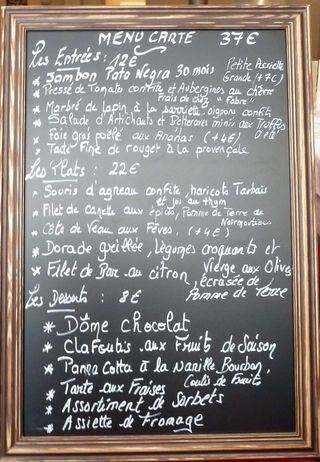 MENU CARTE 37€
Les Entrées: 12€
* Jambon Pata Négra 30 mois Petite Assiette
Grande (+7€)
* Pressé de Tomates confite et Aubergines au chèvre
Frais de chez "Fabre"
* Marbré de lapin à la sarriette, oignons confits
* Salade d'Artichauts et Betteraves minis aux Truffes
d'été
* Foie gras poêlé aux Ananas (+4€)
* Tarte Fine de rouget à la provençale
Les Plats: 22€
* Souris d'agneau confite, haricots Tarbais
et jus au thym
* Filet de canette aux épices, Pomme de Terre de
Noirmoutiers
* Côte de Veau aux Fèves. (+4€)
* Dorade grillée, légumes croquants et
Vierge aux Olives
* Filet de Bar au citron, écrasée de
Pomme de Terre
Les Desserts: 8€
* Dôme Chocolat
* Clafoutis aux Fruits de Saison
* Panna Cotta à la Vanille Bourbon,
Coulis de Fruits
* Tarte aux Fraises
* Assortiment de Sorbets
* Assiette de Fromage